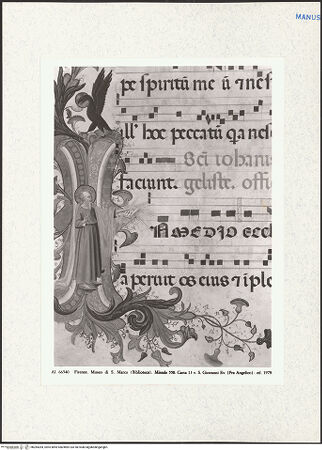 MANUS
pe spiritū me ū ⁊ nesc
ill' hoc peccatū qa nesc
Sc̄i Iohanis
faciunt. geliste. offi
N MEDIO eccl
aperuit os eius ⁊ iple
AL 66946 Firenze. Museo di S. Marco (Biblioteca). Missale 558. Carta 13 v. S. Giovanni Ev. (Fra Angelico). ed. 1979